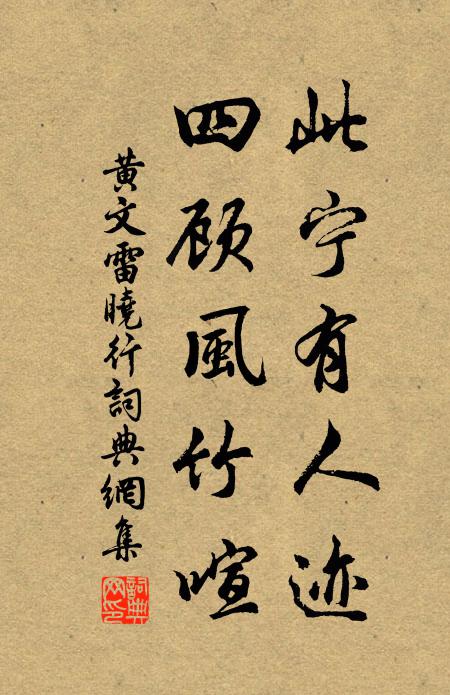 此宁有人迹
四顾風竹喧
黄文雷曉行詞典網集
詞典网印